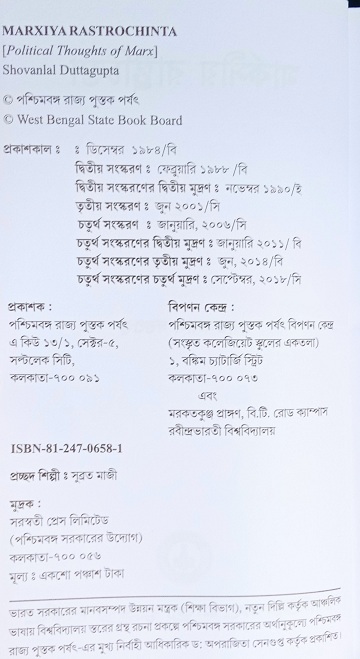 MARXIYA RASTROCHINTA
[Political Thoughts of Marx]
Shovanlal Duttagupta
© পশ্চিমবঙ্গ রাজ্য পুস্তক পর্ষৎ
© West Bengal State Book Board
প্রকাশকাল : : ডিসেম্বর ১৯৮৪/বি
দ্বিতীয় সংস্করণ : ফেব্রুয়ারি ১৯৮৮ /বি
দ্বিতীয় সংস্করণের দ্বিতীয় মুদ্রণ : নভেম্বর ১৯৯০/ই
তৃতীয় সংস্করণ : জুন ২০০১/সি
চতুর্থ সংস্করণ : জানুয়ারি, ২০০৬/সি
চতুর্থ সংস্করণের দ্বিতীয় মুদ্রণ : জানুয়ারি ২০১১/ বি
চতুর্থ সংস্করণের তৃতীয় মুদ্রণ : জুন, ২০১৪/বি
চতুর্থ সংস্করণের চতুর্থ মুদ্রণ : সেপ্টেম্বর, ২০১৮/সি
প্রকাশক :
পশ্চিমবঙ্গ রাজ্য পুস্তক পর্ষৎ
এ কিউ ১৩/১, সেক্টর-৫,
সল্টলেক সিটি,
কলকাতা-৭০০ ০৯১
বিপণন কেন্দ্র :
পশ্চিমবঙ্গ রাজ্য পুস্তক পর্ষৎ বিপণন কেন্দ্র
(সংস্কৃত কলেজিয়েট স্কুলের একতলা)
১, বঙ্কিম চ্যাটার্জি স্ট্রিট
কলকাতা-৭০০ ০৭৩
এবং
মরকতকুঞ্জ প্রাঙ্গণ, বি.টি. রোড ক্যাম্পাস
রবীন্দ্রভারতী বিশ্ববিদ্যালয়
ISBN-81-247-0658-1
প্রচ্ছদ শিল্পী : সুব্রত মাজী
মুদ্রক :
সরস্বতী প্রেস লিমিটেড
(পশ্চিমবঙ্গ সরকারের উদ্যোগ)
কলকাতা-৭০০ ০৫৬
মূল্য : একশো পঞ্চাশ টাকা
ভারত সরকারের মানবসম্পদ উন্নয়ন মন্ত্রক (শিক্ষা বিভাগ), নতুন দিল্লি কর্তৃক আঞ্চলিক
ভাষায় বিশ্ববিদ্যালয় স্তরের গ্রন্থ রচনা প্রকল্পে পশ্চিমবঙ্গ সরকারের অর্থানুকূল্যে পশ্চিমবঙ্গ
রাজ্য পুস্তক পর্ষৎ-এর মুখ্য নির্বাহী আধিকারিক ড: অপরাজিতা সেনগুপ্ত কর্তৃক প্রকাশিত।